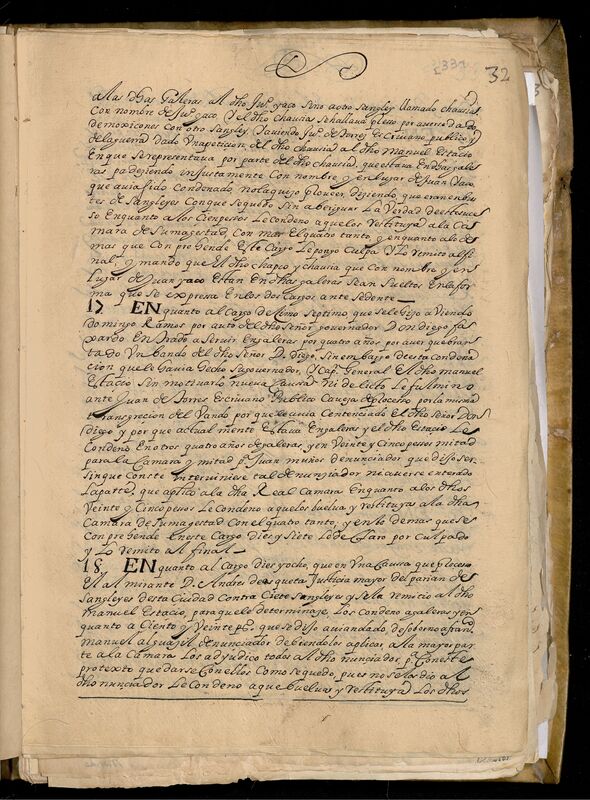 331
32
a las dhas galeras al dho Juº. yaco sino a otro sangley llamado chauria
Con nombre de Juº. yaco y el dho chauria se hallaua preso por auerse dado
de moxicones con otro sangley y auiendo Juº. de torres escriuano publico y
de la guerra dado Una peticion del dho chauria al dho Manuel Estacio
En que se rrepresentaua por parte del dho chauria, que estaua En dhas gale
ras padesiendo injustamente Con nombre, y en lugar de Juan Yaco,
que auia sido condenado, nola quiso proueer, disiendo, que eran enbus
tes de sangleyes Con que se quedo sin aberiguar La Verdad de este suces
so En quanto a los Cien pesos Le condeno a que los rrestituya a la Ca
mara de su magestad, Con mas El quatro tanto, y en quanto a lo de
mas que Con prehende Este Cargo Le pongo Culpa y Lo rremito al fi
nal, y mando que El dho chapco y chauria que con nombre y en
Lugar de Juan yaco Estan En dhas galeras sean sueltos En la for
ma que se expresa En los dos Cargos ante sedente
17 EN quanto al Cargo desimo septimo que se le hizo a Viendo
Domingo Ramos por auto del dho Señor gouernador Don diego fa
xardo En biado a seruir En galeras por quatro años por auer quebran
tado Un bando del dho Señor D. diego, sin embargo de esta condena
cion que le hauia hecho su gouernador, y Cap. General El dho manuel
Estacio sin motiuarlo nueua Causa ni delicto Le fulmino
ante Juan de torres Escriuano Publico Caueça de proceso por la misma
transgrecion del Vando por que le auia Centenciado El dho señor Don
diego y por que actualmente Estaua En galeras y el dho Estacio Le
Condeno En otros quatro años de galeras, y en Veinte y Cinco pesos mitad
para la Camara y mitad pª. Juan muños denunciador que diso ser
sin que Conste Interviniese tal denunciador ni auerse enterado
La parte, que aplico a la dha Real Camara En quanto a los dhos
Veinte y Cinco pesos Le condeno a que los buelua y rrestituya a la dha
Camara de su magestad Con el quatro tanto, y en lo demas que se
Con prehende En este Cargo Dies y siete Le declaro por Culpado
y Lo rremito al final
18. EN quanto al Cargo dies y ocho, que en Una Causa que proceso
El almirante D. Andres de Justicia mayor del parian de
sangleyes desta Ciudad Contra Ciete sangleyes y se la rremitio al dho
manuel Estacio, para que le determinase, Los condeno a galeras y en
quanto a Ciento y Veinte pºs. que se diso auian dado, de soborno a franco
manuel alguazil denunciador deuiendolos aplicar a la mayor par
te a la Camara Los adjudico todos al dho nunciador, pª. Con este
pretexto quedarse Con ellos Como se quedo, pues no se los dio al
dho nunciador Le Condeno a que buelua y rrestituya Los dhos